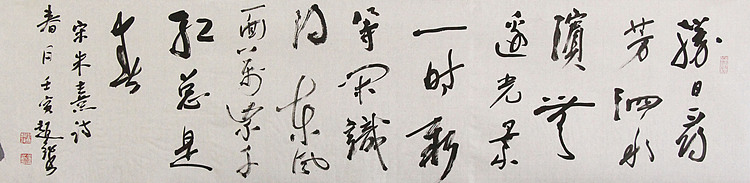 勝日尋
芳泗水
濱無
邊光景
一時新
等閑識
得東風
面萬紫千
紅總是
春
宋朱熹詩
春日壬寅趙